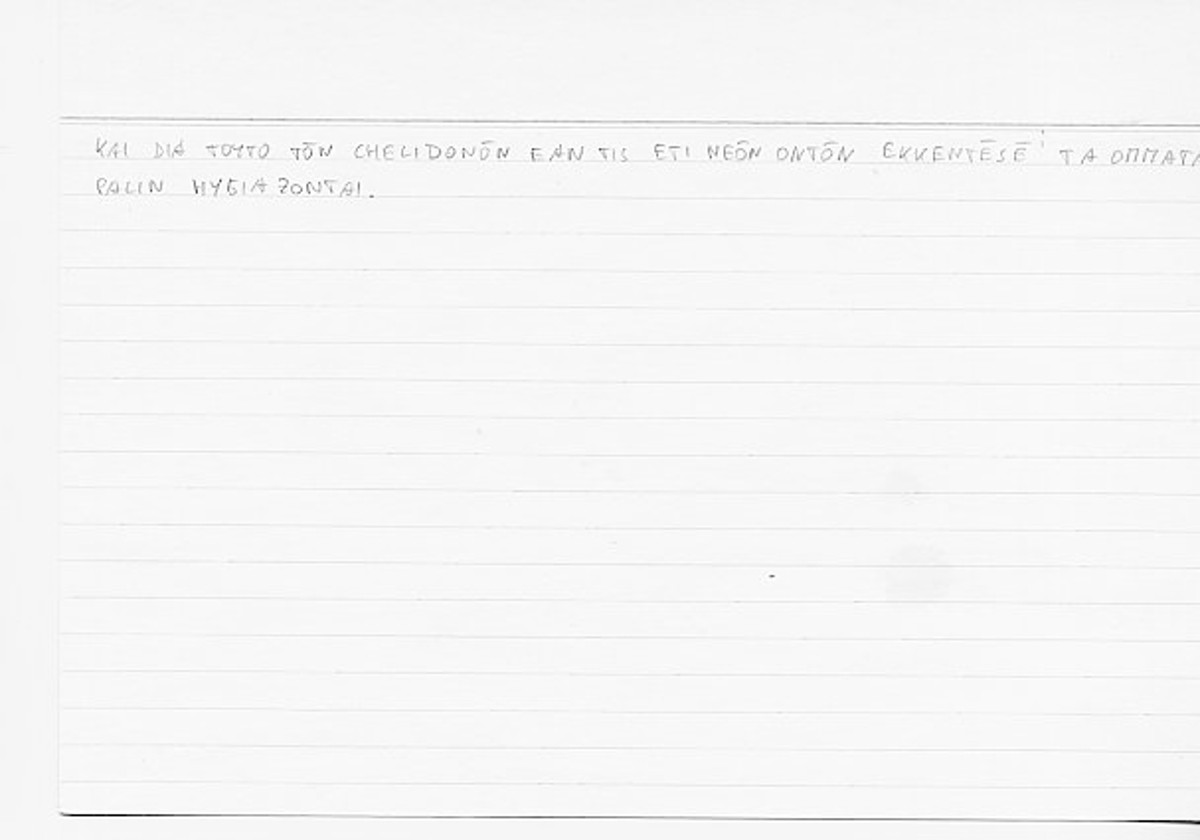 KAI DIA TOYTO TŌN CHELIDONŌN EAN TIS ETI NEŌN ONTŌN EKKENTĒSĒ' TA OMMATA
PALIN HYGIAZONTAI.